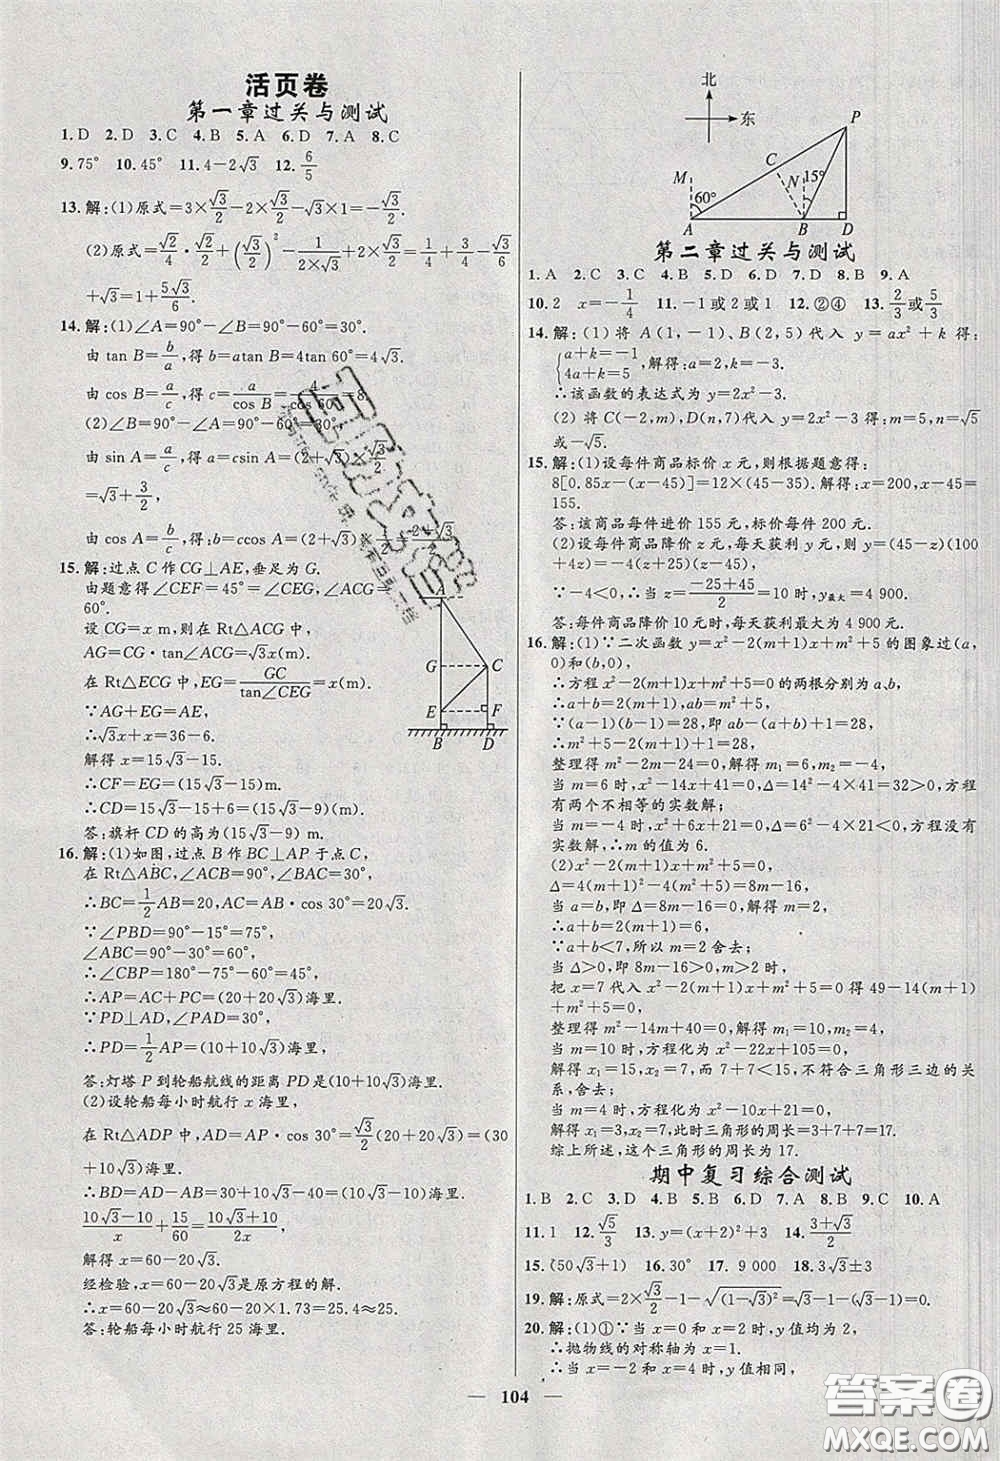 活页卷
第一章过关与测试
1.D 2.D 3.C 4.B 5.A 6.D 7.A 8.C
9.75° 10.45° 11.4-2√3 12.6/5
13.解:(1)原式=3×√3/2-√3/2-√3×1=-√3.
(2)原式=√2/4·√2/2+(√3/2)²-1/(2×√3/2)+2×√3/2=1/4+3/4-√3/3
+√3/2+√3=1+5√3/6.
14.解:(1)∠A=90°-∠B=90°-60°=30°.
由 tan B=b/a,得 b=atan B=4tan 60°=4√3.
由 cos B=a/c,得 c=a/cos B=4/cos 60°=8.
(2)∠A=90°-∠B=90°-60°=30°.
由 sin A=a/c,得 a=csin A=(2+√3)×√3/2
=√3+3/2.
由 cos A=b/c,得 b=ccos A=(2+√3)
15.解:过点 C 作 CG⊥AE,垂足为 G.
由题意得∠CEF=45°=∠CEG,∠ACG=
60°.
设 CG=x m,则在 Rt△ACG 中,
AG=CG·tan∠ACG=√3x(m).
在 Rt△ECG 中,EG=GC/tan∠CEG=x(m).
∵AG+EG=AE,
∴√3x+x=36-6.
解得 x=15√3-15.
∴CF=EG=(15√3-15)m.
∴CD=15√3-15+6=(15√3-9)(m).
答:旗杆 CD 的高为(15√3-9) m.
A
G
C
E
F
B
D
16.解:(1)如图,过点 B 作 BC⊥AP 于点 C,
在 Rt△ABC 中,∠ACB=90°,∠BAC=30°,
∴BC=1/2AB=20,AC=AB·cos 30°=20√3.
∵∠PBD=90°-15°=75°,
∠ABC=90°-30°=60°,
∴∠CBP=180°-75°-60°=45°.
∴AP=AC+PC=(20+20√3)海里.
∵PD⊥AD,∠PAD=30°,
∴PD=1/2AP=(10+10√3)海里.
答:灯塔 P 到轮船航线的距离 PD 是(10+10√3)海里.
(2)设轮船每小时航行 x 海里,
在 Rt△ADP 中,AD=AP·cos 30°=√3/2(20+20√3)=(30
+10√3)海里.
∴BD=AD-AB=30+10√3-40=(10√3-10)海里.
(10√3-10)/x+15/60=(10√3+10)/2x.
解得 x=60-20√3.
经检验,x=60-20√3是原方程的解.
∴x=60-20√3≈60-20×1.73=25.4≈25.
答:轮船每小时航行 25 海里.
北
东
P
C
M
N
15°
60°
A
B
D
第二章过关与测试
1.A 2.C 3.C 4.B 5.D 6.D 7.D 8.B 9.A
10.2 x=-1/4 11.-1或2或1 12.②④ 13.2/3或5/3
14.解:(1) 将 A(1,-1)、B(2,5)代入 y=ax²+k 得:
{a+k=-1, 4a+k=5,解得:a=2,k=-3,
∴该函数的表达式为 y=2x²-3.
(2) 将 C(-2,m),D(n,7)代入 y=2x²-3 得:m=5,n=√5
或-√5.
15.解:(1)设每件商品标价 x 元,则根据题意得:
8[0.85x-(x-45)]=12×(45-35).解得:x=200,x-45=
155.
答:该商品每件进价 155 元,标价每件 200 元.
(2)设每件商品降价 z 元,每天获利 y 元,y=(45-z)(100
+4z)=-4z²+80z+4500.
∵-4<0,∴当 z=(-25+45)/2=10时,y最大=4 900.
答:每件商品降价 10 元时,每天获利最大为 4 900 元.
16.解:(1)∵二次函数 y=x²-2(m+1)x+m²+5 的图象过(a,
0)和(b,0),
∴方程 x²-2(m+1)x+m²+5=0 的两根分别为 a、b,
∴a+b=2(m+1),ab=m²+5.
∵(a-1)(b-1)=28,即 ab-(a+b)+1=28,
∴m²+5-2(m+1)+1=28,
整理得 m²-2m-24=0,解得 m₁=6,m₂=-4,
当 m=6 时,x²-14x+41=0,Δ=14²-4×41=32>0,方程
有两个不相等的实数解;
当 m=-4 时,x²+6x+21=0,Δ=6²-4×21<0,方程没有
实数解,∴m 的值为 6.
(2)x²-2(m+1)x+m²+5=0,
Δ=4(m+1)²-4(m²+5)=8m-16.
当 a=b,即 Δ=8m-16=0,解得 m=2,
∴a+b=2(m+1)=6,
∵a+b<7,所以 m=2 舍去;
当 Δ>0,即 8m-16>0,m>2,
把 x=7 代入 x²-2(m+1)x+m²+5=0 得 49-14(m+1)
+m²+5=0,
整理得 m²-14m+40=0,解得 m₁=10,m₂=4,
当 m=10 时,方程化为 x²-22x+105=0,
解得 x₁=15,x₂=7,而 7+7<15,不符合三角形三边的关
系,舍去;
当 m=4 时,方程化为 x²-10x+21=0,
解得 x₁=3,x₂=7,此时三角形的周长=3+7+7=17.
综上所述,这个三角形的周长为 17.
期中复习综合测试
1.B 2.C 3.D 4.B 5.D 6.B 7.A 8.B 9.C 10.A
11.1 12.√5/3 13.y=(x+2)²+3 14.(3+√3)/2
15.(50√3+1) 16.30° 17. 9 000 18.√3±3
19.解:原式=2×√3/2-1-√(1-√3)²=√3-1-√3+1=0.
20.解:(1)①∵当 x=0 和 x=2 时,y 值均为 2,
∴抛物线的对称轴为 x=1.
∴当 x=-2 和 x=4 时,y 值相同,
104
答案卷
MXQE.COM